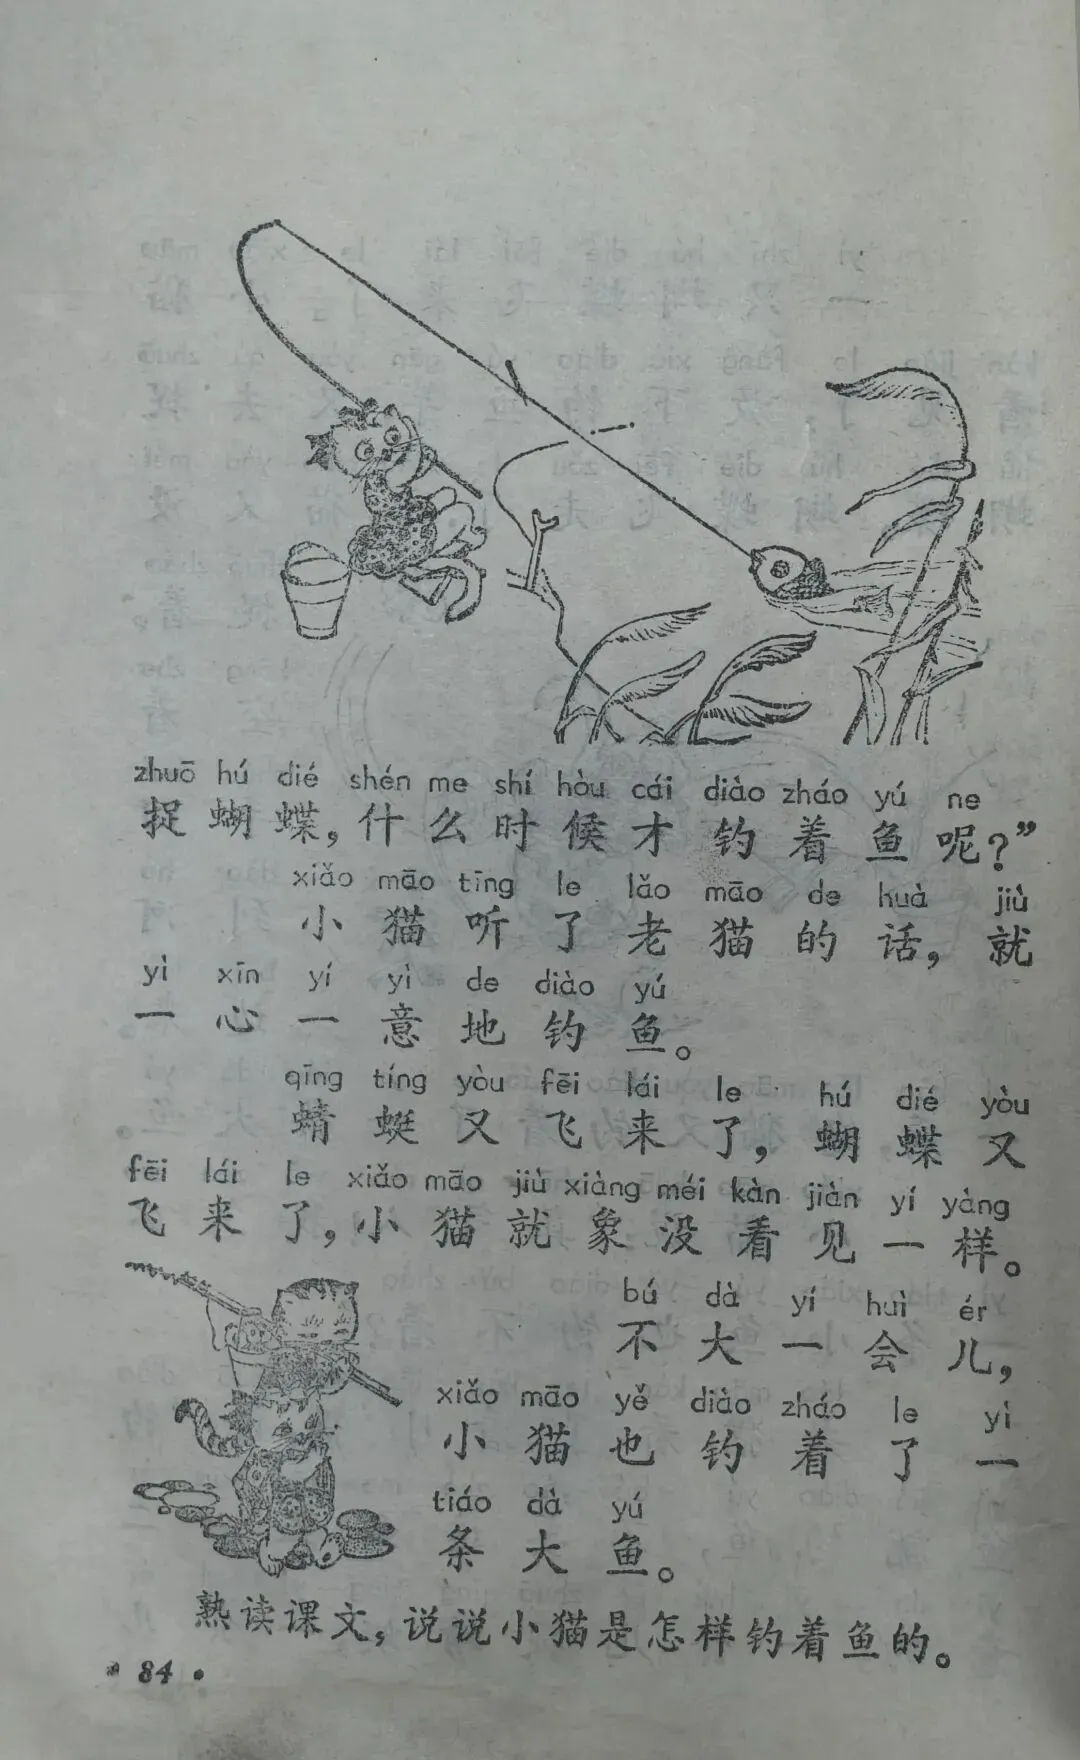 zhuō hú dié shén me shí hòu cái diào zháo yú ne
捉蝴蝶，什么时候才钓着鱼呢？”
xiǎo māo tīng le lǎo māo de huà jiù
小猫听了老猫的话，就
yì xīn yí yì de diào yú
一心一意地钓鱼。
qīng tíng yòu fēi lái le hú dié yòu
蜻蜓又飞来了，蝴蝶又
fēi lái le xiǎo māo jiù xiàng méi kàn jiàn yí yàng
飞来了，小猫就象没看见一样。
bú dà yí huì ér
不大一会儿，
xiǎo māo yě diào zháo le yì
小猫也钓着了一
tiáo dà yú
条大鱼。
熟读课文，说说小猫是怎样钓着鱼的。
• 84 •